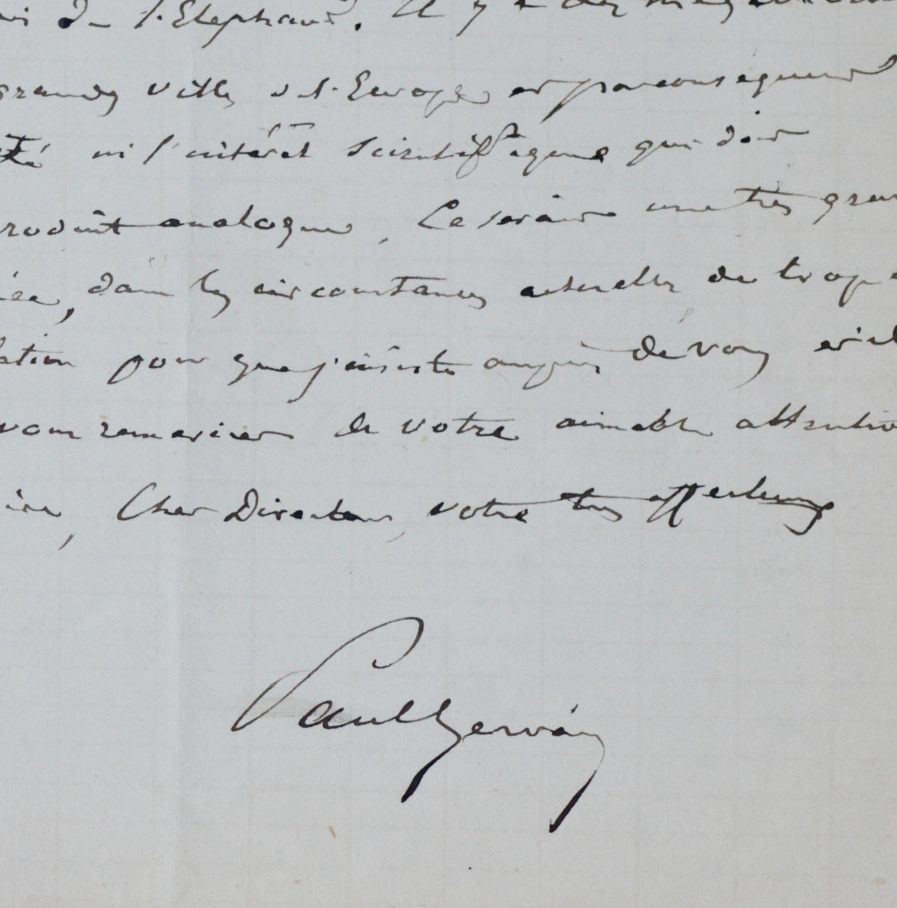 de l'Elephant. Il y a des
grandes villes de l'Europe et par conséquent
té ni l'intérêt scientifique que doit
produit analogue. Ce serait une très gran
dans les circonstances actuelles de trop
ation pour que j'insiste auprès de vous et
vous remercier de votre aimable attentio
ire, Cher Directeur, votre très affectueux
Paul Gervais